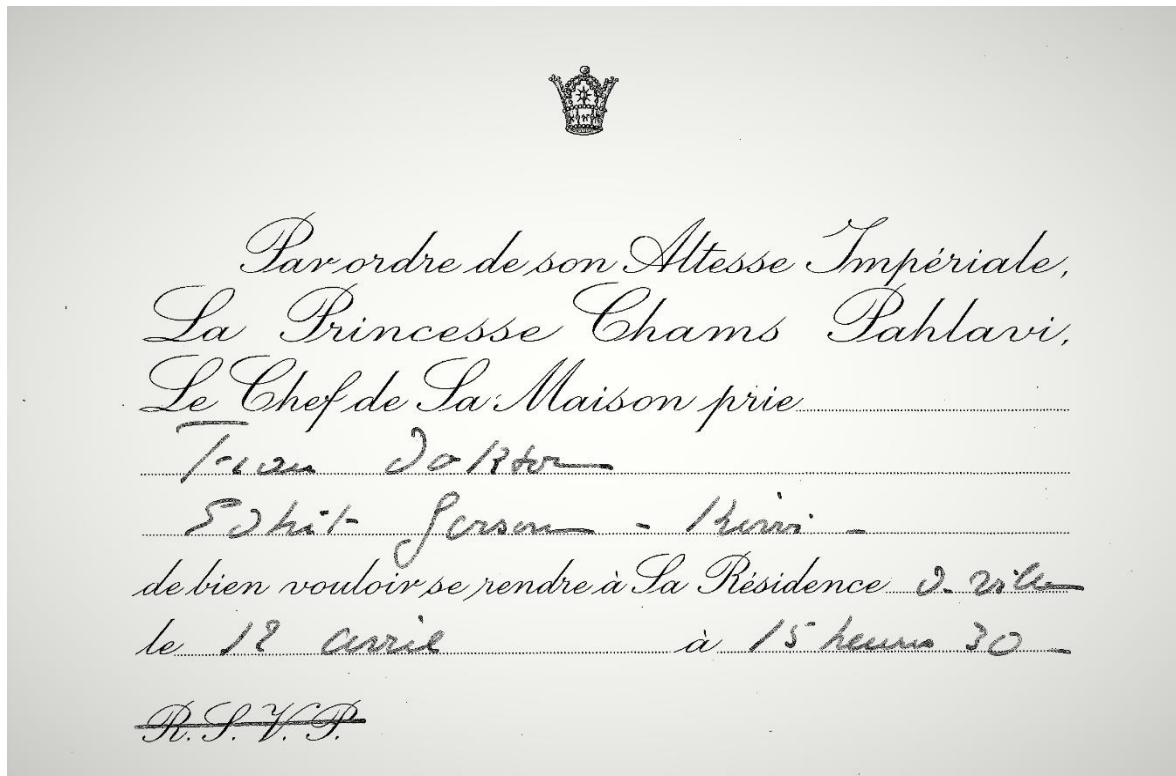 Par ordre de son Altesse Impériale,
La Princesse Chams Pahlavi,
Le Chef de Sa Maison prie
Frau Doktor
Edhit Gerson - Kiwi -
de bien vouloir se rendre à Sa Résidence de ville
le 12 avril à 15 heures 30
R.S.V.P.